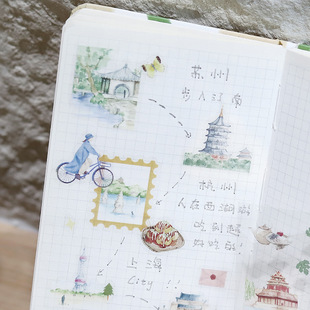 苏州
步入江南
杭州
人在西湖游
吃到撑
好吃哭！
上海
City